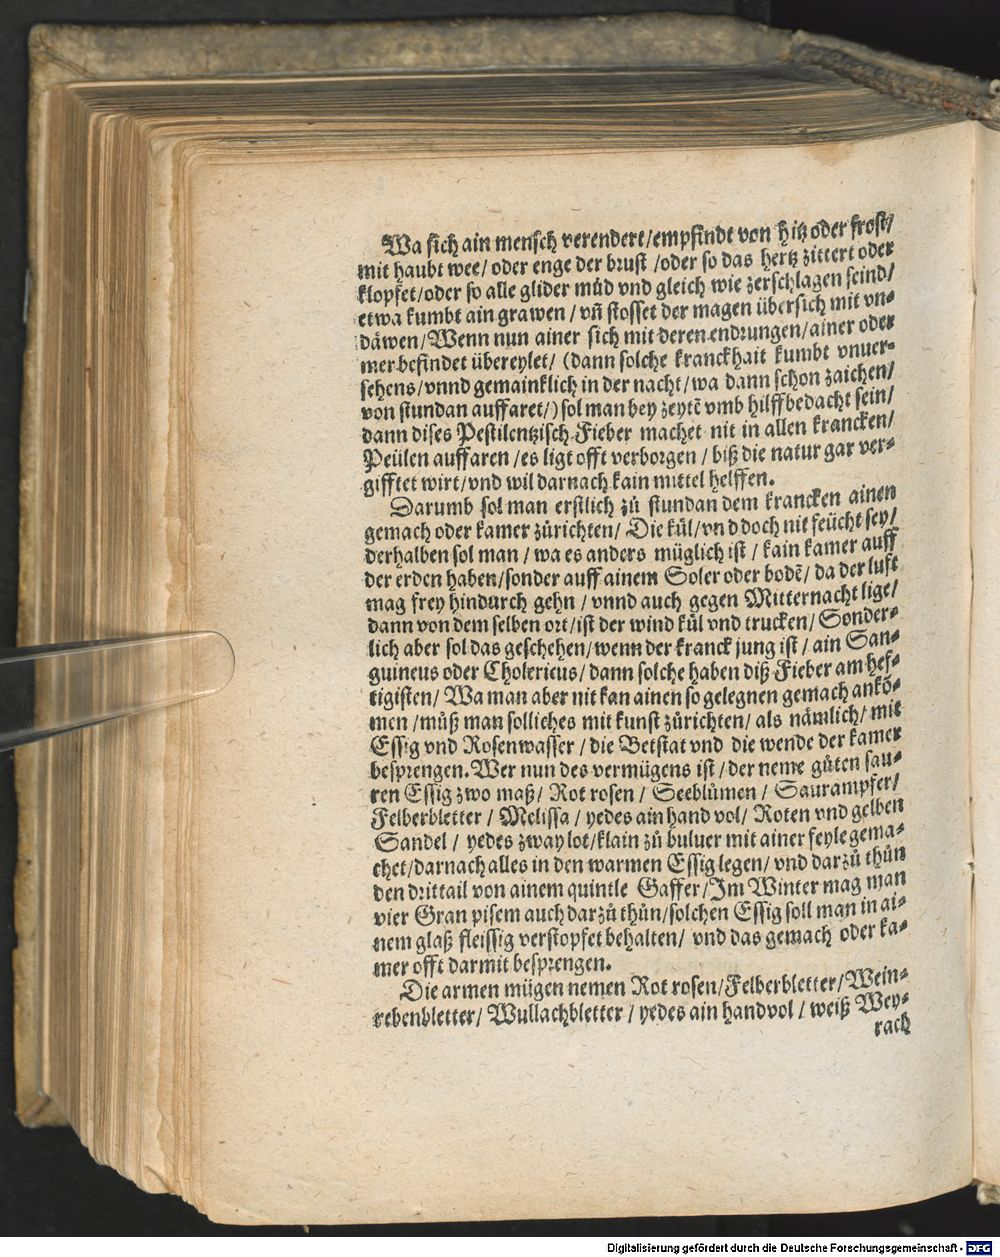 Wa sich ain mensch verendert/empfindt von hitz oder frost/
mit haubt wee/ oder enge der brust /oder so das hertz zittert oder
klopfet/oder so alle glider müd vnd gleich wie zerschlagen seind/
etwa kumbt ain grawen / vñ stosset der magen übersich mit vn⸗
däwen/Wenn nun ainer sich mit deren endrungen/ainer oder
mer befindet übereylet/ (dann solche kranckhait kumbt vnuer⸗
sehens/vnnd gemainklich in der nacht/wa dann schon zaichen/
von stundan auffaret/) sol man bey zeytẽ vmb hilff bedacht sein/
dann dises Pestilentzisch Fieber machet nit in allen krancken/
Peülen auffaren /es ligt offt verborgen / biß die natur gar ver⸗
gifftet wirt/vnd wil darnach kain mittel helffen.
Darumb sol man erstlich zů stundan dem krancken ainen
gemach oder kamer zůrichten/ Die kül/vnd doch nit feücht sey/
derhalben sol man / wa es anders müglich ist / kain kamer auff
der erden haben/sonder auff ainem Soler oder bodẽ/ da der luft
mag frey hindurch gehn / vnnd auch gegen Mitternacht lige/
dann von dem selben ort/ist der wind kül vnd trucken/ Sonder⸗
lich aber sol das geschehen/wenn der kranck jung ist / ain San⸗
guineus oder Cholericus/ dann solche haben diß Fieber am hef⸗
tigisten/ Wa man aber nit kan ainen so gelegnen gemach ankõ⸗
men /můß man solliches mit kunst zůrichten/ als nämlich/ mit
Essig vnd Rosenwasser / die Betstat vnd die wende der kamer
besprengen. Wer nun des vermügens ist / der neme gůten sau⸗
ren Essig zwo maß/ Rot rosen / Seeblůmen / Saurampfer/
Felberbletter / Melissa / yedes ain hand vol/ Roten vnd gelben
Sandel / yedes zway lot/klain zů buluer mit ainer feyle gema⸗
chet/darnach alles in den warmen Essig legen/ vnd darzů thůn
den drittail von ainem quintle Gaffer/Im Winter mag man
vier Gran pisem auch darzů thůn/solchen Essig soll man in ai⸗
nem glaß fleissig verstopfet behalten/ vnd das gemach oder ka⸗
mer offt darmit besprengen.
Die armen mügen nemen Rot rosen/Felberbletter/Wein⸗
rebenbletter/ Wullachbletter / yedes ain handvol / weiß Wey⸗
rach
Digitalisierung gefördert durch die Deutsche Forschungsgemeinschaft - DFG